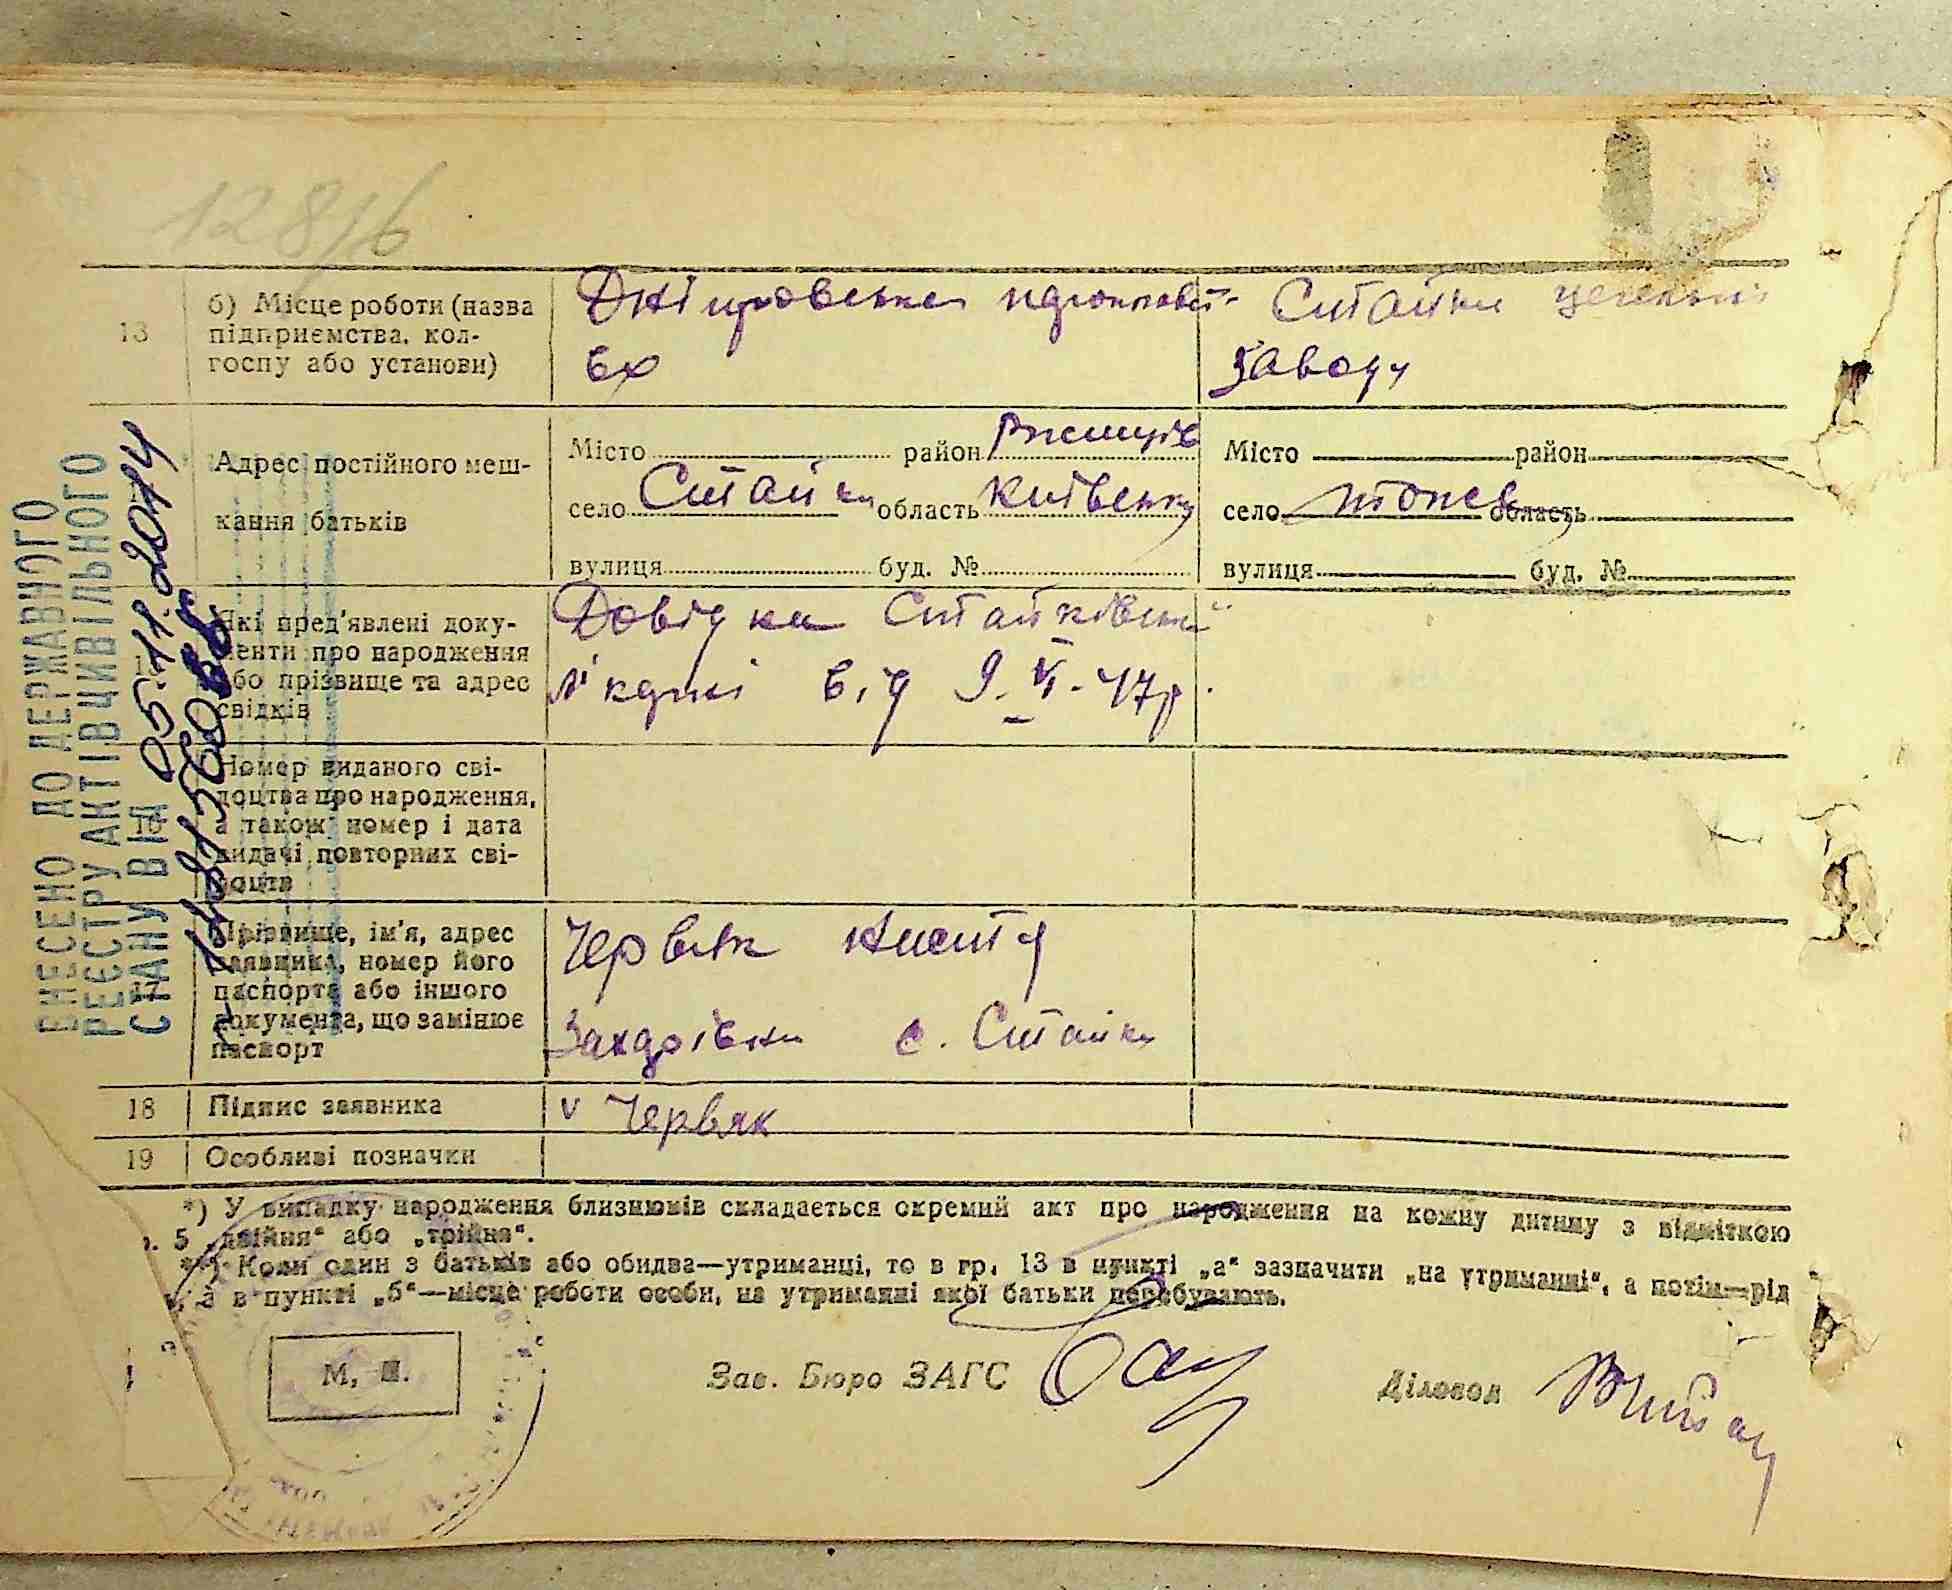 128/6
13
б) Місце роботи (назва підприємства, кол-
госпу або установи)
Дніпровське
Стайки
заводу
Адрес постійного меш-
кання батьків
Місто район Ржищів
село Стайки область Київська
вулиця буд. №
Місто район
село тоже область
вулиця буд. №
Які пред'явлені доку-
менти про народження
або прізвище та адрес
свідків
Довідка Стайківської
лікарні від 9.VI-47р.
16
Номер виданого сві-
доцтва про народження,
а також номер і дата
видачі повторних сві-
доцтв
17
Прізвище, ім'я, адрес
заявника, номер його
паспорта або іншого
документа, що замінює
паспорт
Червяк
с. Стайки
18
Підпис заявника
v Червяк
19
Особливі позначки
*) У випадку народження близнюків складається окремий акт про народження на кожну дитину з відміткою
5 „двійня“ або „трійня“.
**) Коли один з батьків або обидва—утриманці, то в гр. 13 в пункті „а“ зазначити „на утриманні“, а потім—рід
а в пункті „б“—місце роботи особи, на утриманні якої батьки перебувають.
М. П.
Зав. Бюро ЗАГС
Діловод
ВНЕСЕНО ДО ДЕРЖАВНОГО
РЕЄСТРУ АКТІВ ЦИВІЛЬНОГО
СТАНУ ВІД 05.11.2014